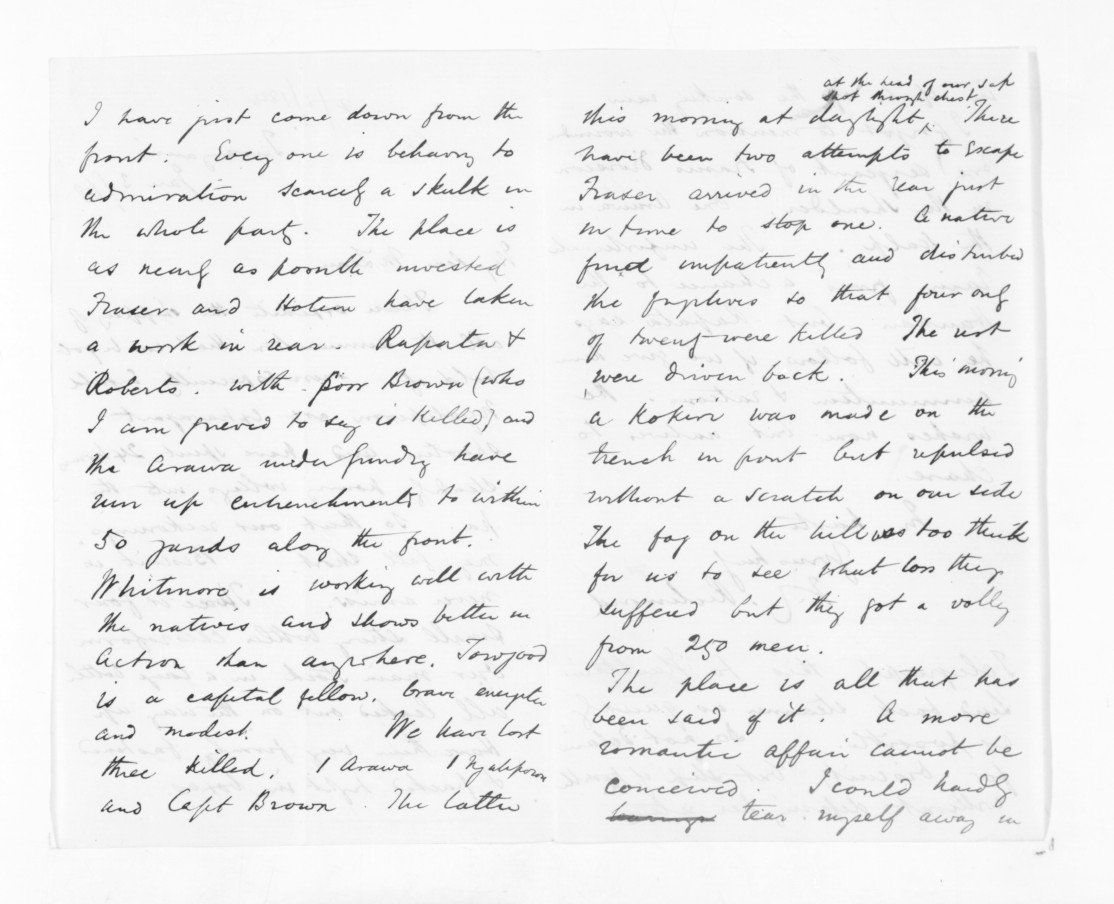 I have just come down from the
front. Every one is behaving to
admiration scarcely a skulk in
the whole party. The place is
as nearly as possible invested
Fraser and Hotene have taken
a work in rear. Rapata &
Roberts. with poor Brown (who
I am grieved to say is killed) and
the Arawa under Gundry have
run up entrenchments to within
50 yards along the front.
Whitmore is working well with
the natives and shows better in
action than anywhere. Towgood
is a capital fellow. brave energetic
and modest. We have lost
three killed. 1 Arawa 1 Ngatiporou
and Capt Brown. The latter
at the head of our sap
shot through chest
this morning at daylight. There
have been two attempts to escape
Fraser arrived in the rear just
in time to stop one. A native
fired impatiently and disturbed
the fugitives so that four only
of twenty were killed The rest
were driven back. This morning
a Kokiri was made on the
trench in front but repulsed
without a scratch on our side
The fog on the hill was too thick
for us to see what loss they
suffered but they got a volley
from 250 men.
The place is all that has
been said of it. A more
romantic affair cannot be
conceived. I could hardly
tear myself away in